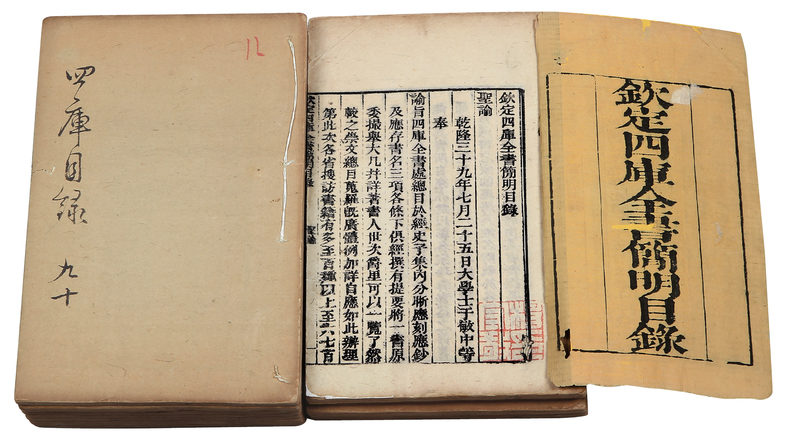 欽定四庫全書簡明目錄
欽定四庫全書簡明目錄
聖諭
乾隆三十九年七月二十五日大學士于敏中等
奉
諭旨四庫全書處總目於經史子集內分晰應刻應鈔
及應存書名三項各條下俱經撰有提要將一書原
委撮舉大凡幷詳著書人世次爵里可以一覽了然
較之崇文總目蒐羅旣廣體例加詳自應如此辦理
第此次各省搜訪書籍有多至百種以上至六七百
欽定四庫全書簡明目錄
12
四庫目録 九十